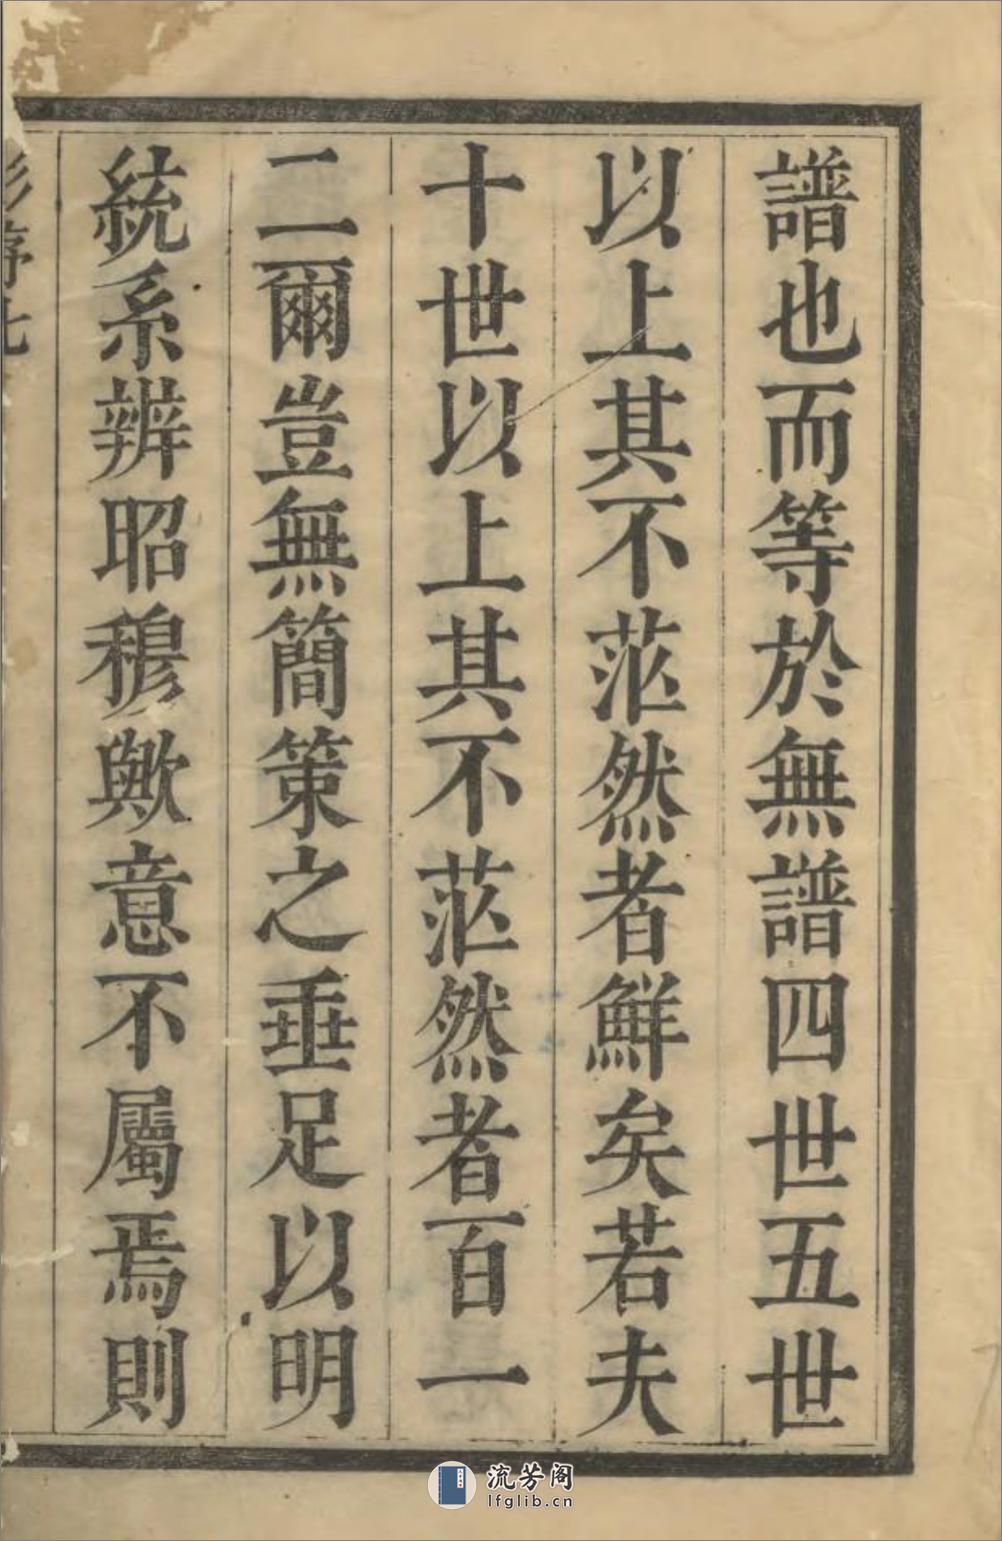 譜也而等於無譜四世五世
以上其不茫然者鮮矣若夫
十世以上其不茫然者百一
二爾豈無簡策之垂足以明
統系辨昭穆歟意不屬焉則
流芳阁
lfglib.cn